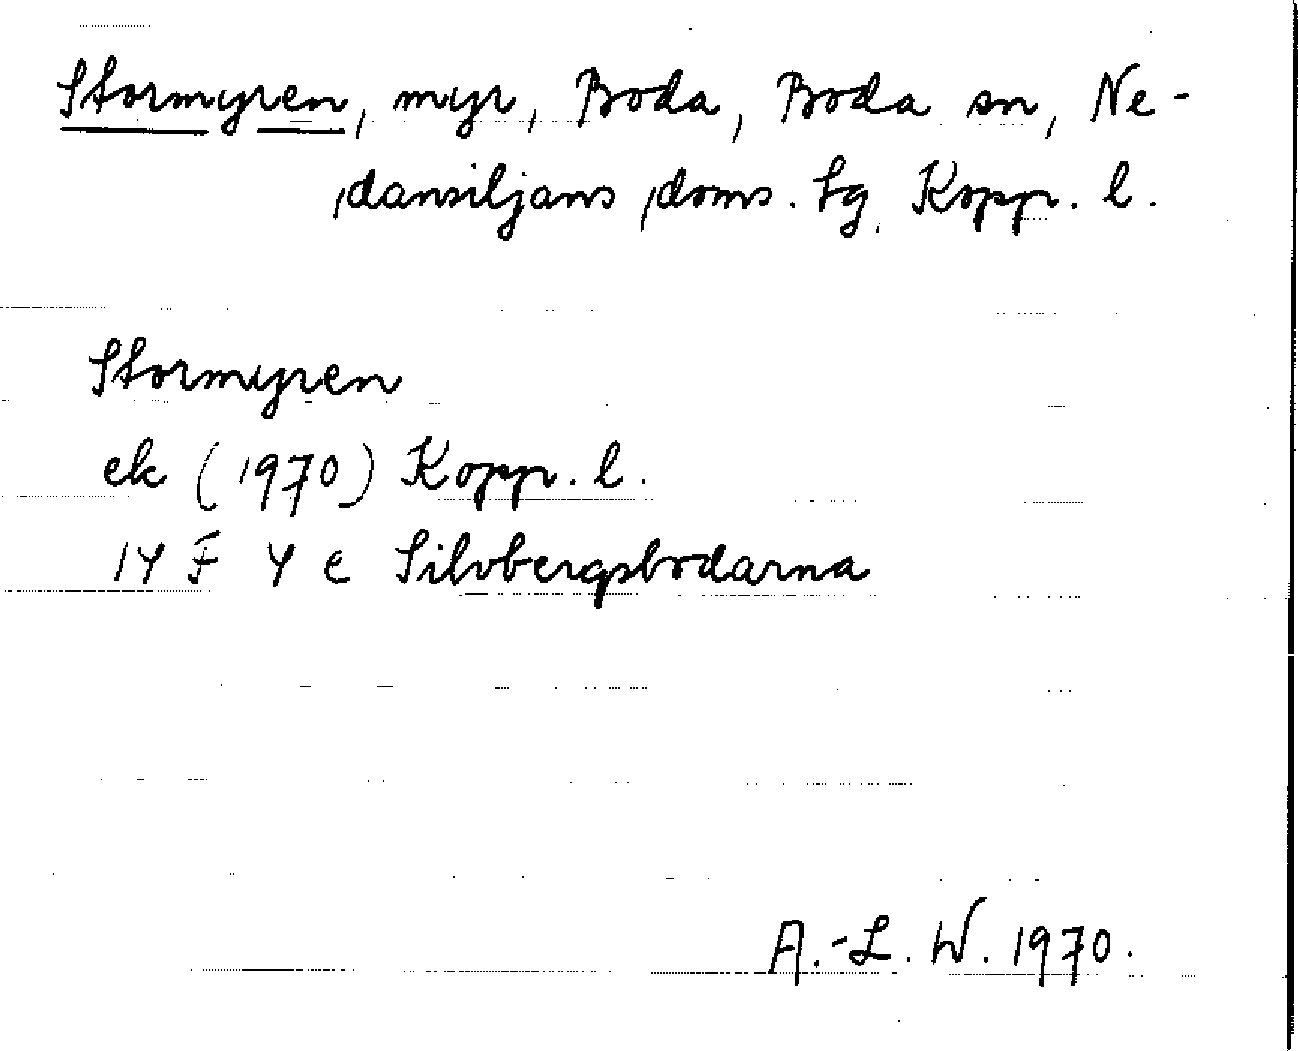 Stormyren, myr, Boda, Boda sn, Ne-
dansiljans doms. tg, Kopp. l.
Stormyren
ek (1970) Kopp. l.
14 F 4 e Silvbergsbodarna
A.-L. W. 1970.